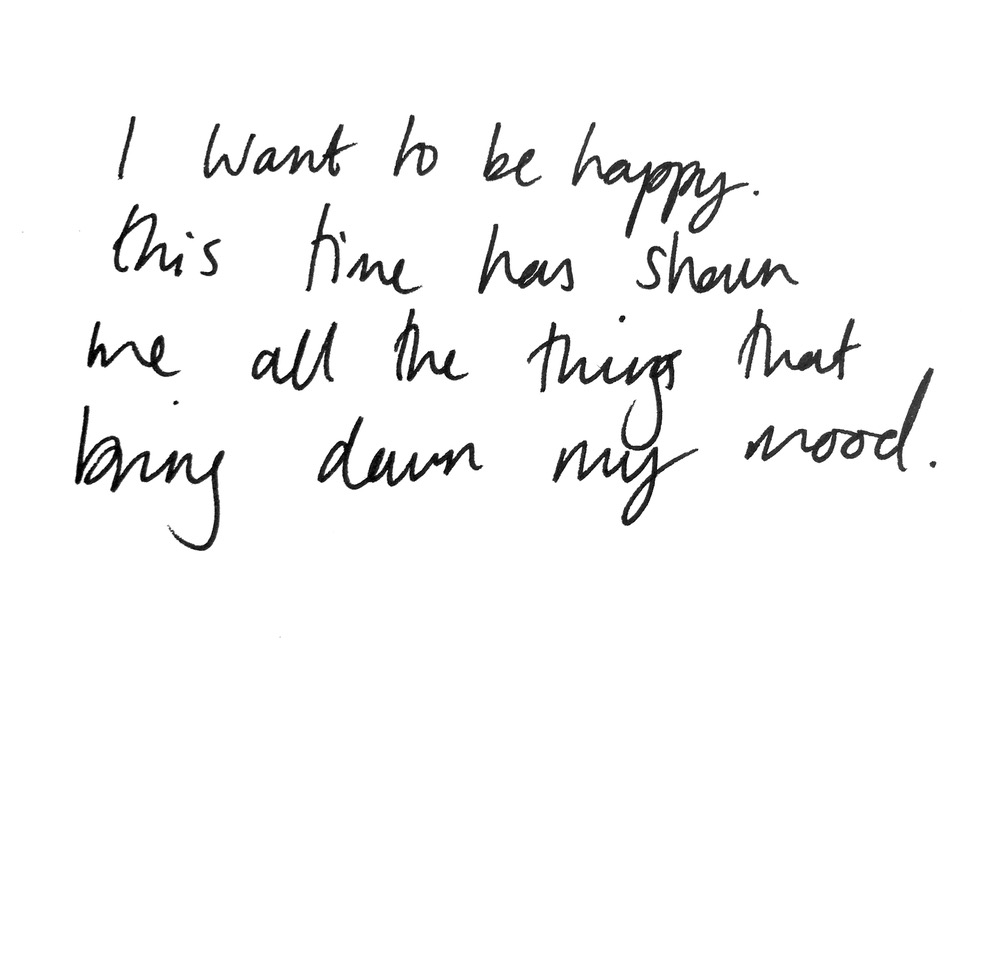 I want to be happy.
this time has shown
me all the things that
bring down my mood.